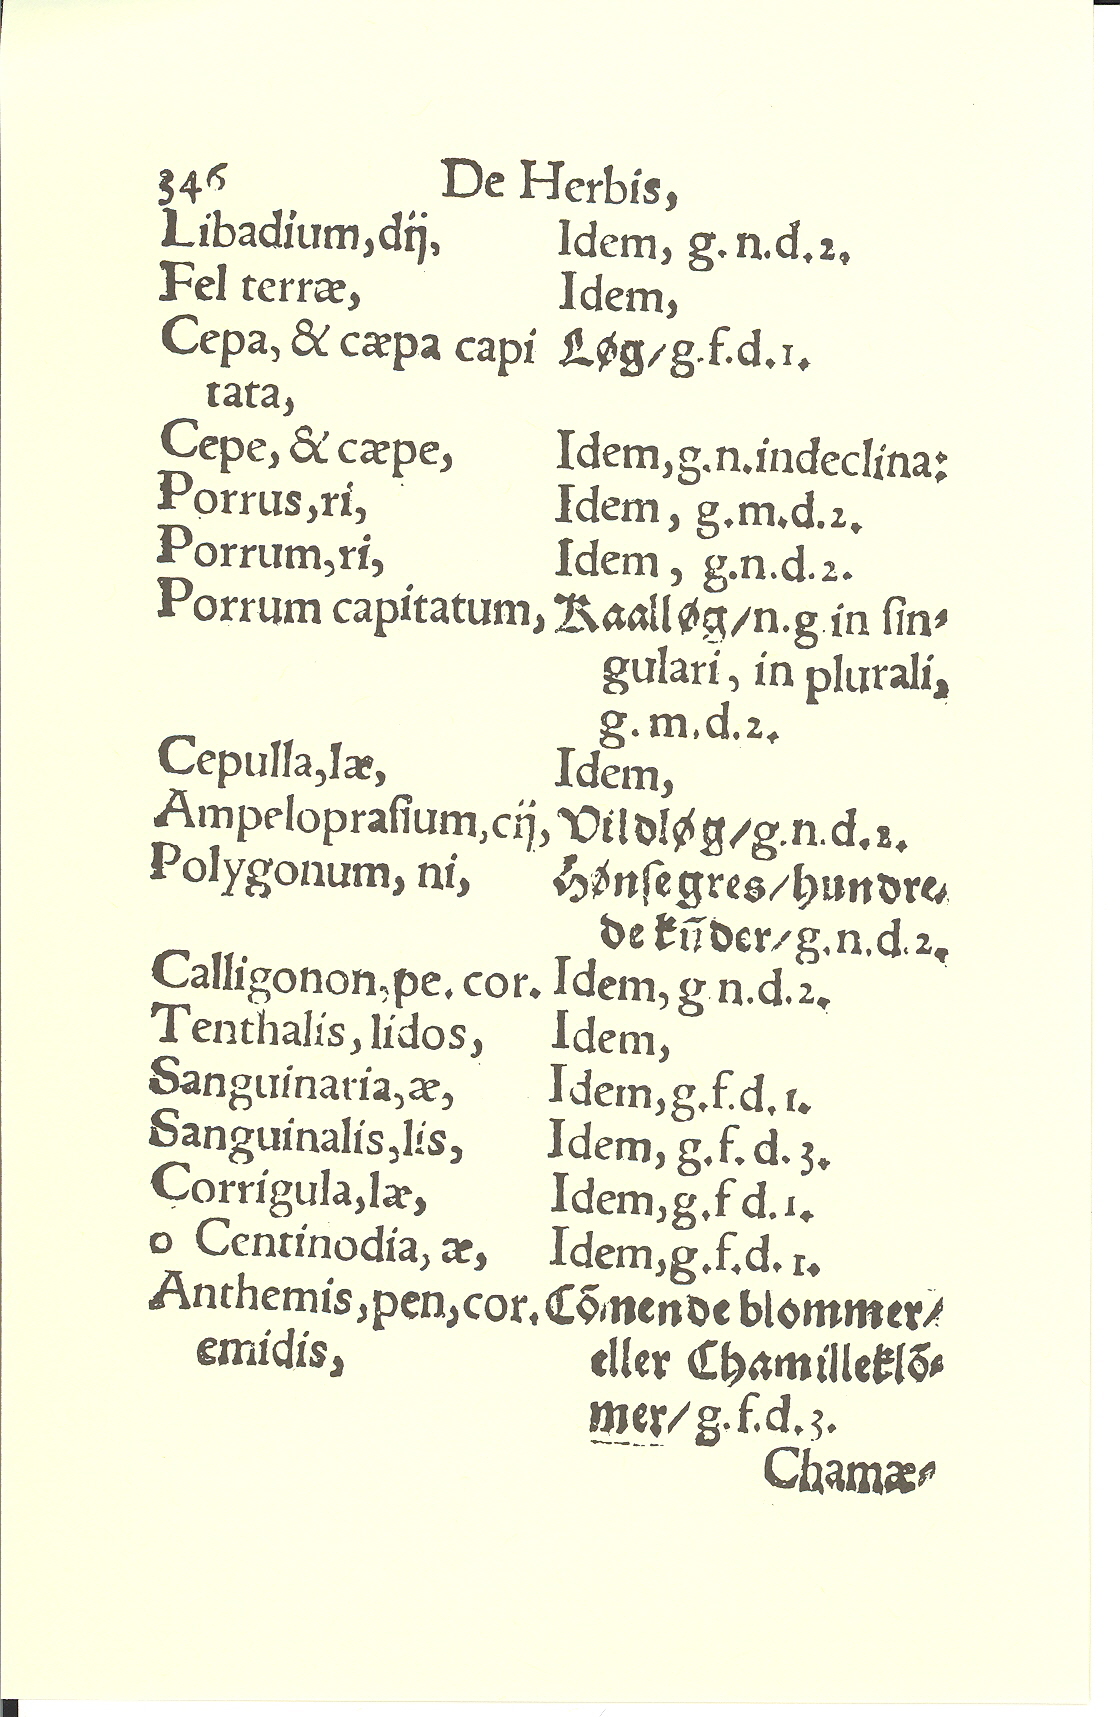 346 De Herbis,
Libadium,dij, Idem, g. n.d.2.
Fel terræ, Idem,
Cepa, & cæpa capi Løg/g.f.d.1.
tata,
Cepe, & cæpe, Idem,g.n.indeclina:
Porrus,ri, Idem, g.m.d.2.
Porrum,ri, Idem, g.n.d.2.
Porrum capitatum, Kaalløg/n.g in ſin-
gulari, in plurali,
g. m.d.2.
Cepulla,læ, Idem,
Ampelopraſium,cij, Vildløg/g.n.d.2.
Polygonum, ni, Hønſegres/hundre-
de knder/g.n.d.2.
Calligonon,pe. cor. Idem, g n.d.2.
Tenthalis, lidos, Idem,
Sanguinaria,æ, Idem,g.f.d.1.
Sanguinalis,lis, Idem, g.f.d.3.
Corrigula,læ, Idem,g.f d.1.
o Centinodia, æ, Idem,g.f.d.1.
Anthemis,pen,cor. Cõmende blommer/
emidis, eller Chamilleklõ-
mer/g.f.d.3.
Chamæ-